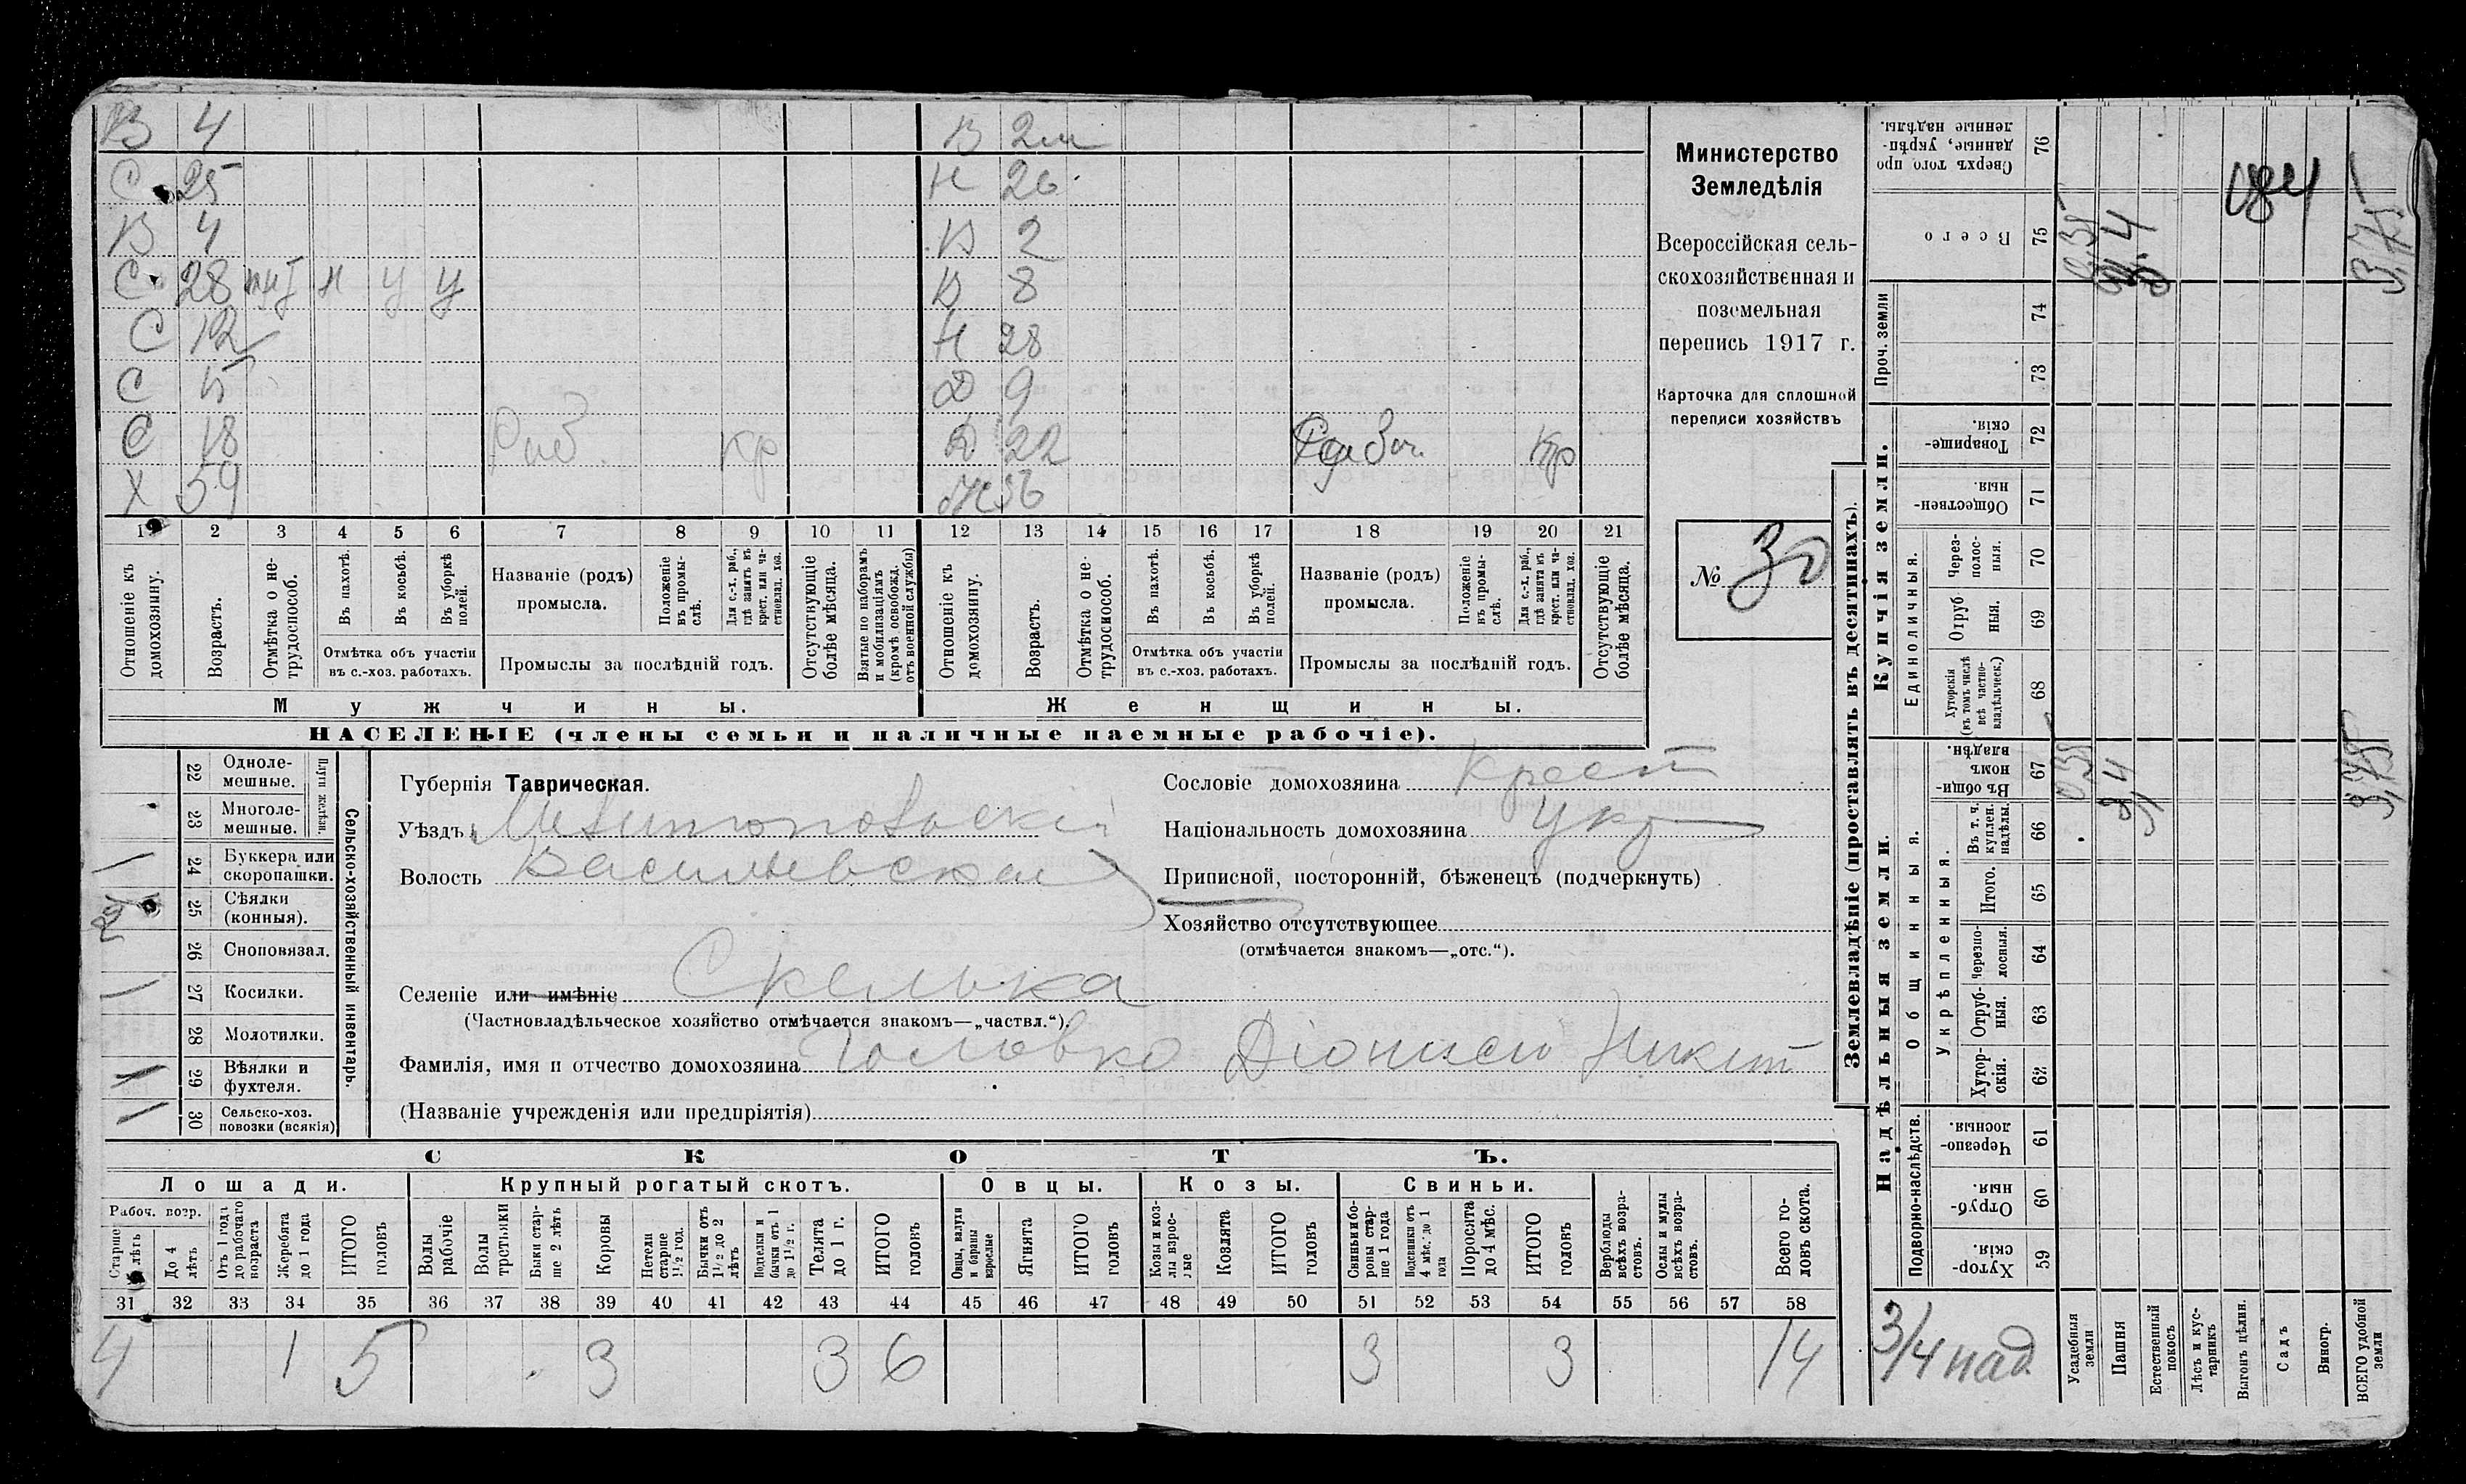 В 4 В 2м
С 25 Н 26
В 4 В 2
С 28 Н У У В 8
С 12 Н 28
С 5 Д 9
С 18 кр Д 22 Кр
Х 59 Ж 56
1 2 3 4 5 6 7 8 9 10 11 12 13 14 15 16 17 18 19 20 21
Отношеніе къ домохозяину.
Возрастъ.
Отмѣтка о нетрудоспособ.
Въ пахотѣ.
Въ косьбѣ.
Въ уборкѣ полей.
Отмѣтка объ участіи
въ с.-хоз. работахъ.
Названіе (родъ)
промысла.
Положеніе въ промыслѣ.
Для с.-х. раб., гдѣ занятъ въ крест. или частновлад. хоз.
Промыслы за послѣдній годъ.
Отсутствующіе болѣе мѣсяца.
Взятые по наборамъ и мобилизаціямъ (кромѣ освобожд. отъ военной службы)
Отношеніе къ домохозяину.
Возрастъ.
Отмѣтка о нетрудоспособ.
Въ пахотѣ.
Въ косьбѣ.
Въ уборкѣ полей.
Отмѣтка объ участіи
въ с.-хоз. работахъ.
Названіе (родъ)
промысла.
Положеніе въ промыслѣ.
Для с.-х. раб., гдѣ занята въ крест. или частновлад. хоз.
Промыслы за послѣдній годъ.
Отсутствующіе болѣе мѣсяца.
Мужчины. Женщины.
НАСЕЛЕНІЕ (члены семьи и наличные наемные рабочіе).
Министерство
Земледѣлія
Всероссійская сель-
скохозяйственная и
поземельная
перепись 1917 г.
Карточка для сплошной
переписи хозяйствъ
№ 30
22 Одноле-
мешные.
23 Многоле-
мешные.
Плуги желѣзн.
24 Буккера или
скоропашки.
25 Сѣялки
(конныя).
26 Сноповязал.
27 Косилки.
28 Молотилки.
29 Вѣялки и
фухтеля.
30 Сельско-хоз.
повозки (всякія)
Сельско-хозяйственный инвентарь.
Губернія Таврическая.
Уѣздъ Мелитопольскій
Волость Васильевская
Селеніе или имѣніе Скелька
(Частновладѣльческое хозяйство отмѣчается знакомъ—„частвл.“).
Фамилія, имя и отчество домохозяина Головко Діонисій Никит
(Названіе учрежденія или предпріятія)
Сословіе домохозяина Крест
Національность домохозяина Укр
Приписной, посторонній, бѣженецъ (подчеркнуть)
Хозяйство отсутствующее
(отмѣчается знакомъ—„отс.“).
СКОТЪ.
Лошади. Крупный рогатый скотъ. Овцы. Козы. Свиньи.
Рабоч. возр.
Старше 4 лѣтъ
До 4 лѣтъ
Отъ 1 года до рабочаго возраста
Жеребята до 1 года
ИТОГО головъ
Волы рабочіе
Волы третьяки
Быки старше 2 лѣтъ
Коровы
Нетели старше 1½ год.
Бычки отъ 1½ до 2 лѣтъ
Подтелки и бычки отъ 1 до 1½ г.
Телята до 1 г.
ИТОГО головъ
Овцы, валухи и бараны взрослые
Ягнята
ИТОГО головъ
Козы и козлы взрослые
Козлята
ИТОГО головъ
Свиньи и боровы старше 1 года
Подсвинки отъ 4 мѣс. до 1 года
Поросята до 4 мѣс.
ИТОГО головъ
Верблюды всѣхъ возрастовъ.
Ослы и мулы всѣхъ возрастовъ.
Всего головъ скота.
31 32 33 34 35 36 37 38 39 40 41 42 43 44 45 46 47 48 49 50 51 52 53 54 55 56 57 58
4 1 5 3 3 6 3 3 14
Землевладѣніе (проставлять въ десятинахъ).
Купчія земли.
Надѣльныя земли.
Сверхъ того проданные, укрѣпленные надѣлы. 76
Всего 75
0,35 3,4 084 3,75
Проч. земли 74
73
Товарищескія. 72
Общественныя. 71
Единоличныя.
Черезполосныя. 70
Отрубныя. 69
Хуторскія (въ томъ числѣ всѣ частновладѣльческ.) 68
Общинныя.
Въ общинномъ владѣн. 67
0,35 3,4 3,75
Укрѣпленныя.
Въ т. ч. куплен. надѣлы 66
Итого. 65
Черезполосныя. 64
Отрубныя. 63
Хуторскія. 62
Подворно-наслѣдств.
Черезполосныя. 61
Отрубныя. 60
Хуторскія. 59
3/4 над
Усадебныя земли
Пашня
Естественный покосъ
Лѣсъ и кустарникъ
Выгонъ цѣлин.
Садъ
Виногр.
ВСЕГО удобной земли